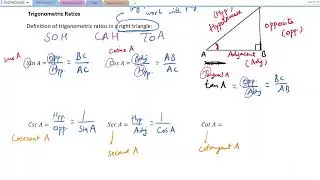 work with
Trigonometric Ratios
Definition of trigonometric ratios in a right triangle:
SOH CAH TOA
Hyp.
Hypotenuse
A
B
opposite
(opp.)
Adjacent
(Adj)
sine A
cosine A
Tangent A
Sin A = Opp. / Hyp. = BC / AC
Cos A = Adj / Hyp. = AB / AC
tan A = Opp. / Adj. = BC / AB
Csc A = Hyp / Opp. = 1 / Sin A
Sec A = Hyp / Adj = 1 / Cos A
Cot A =
Cosecant A
secant A
cotangent A